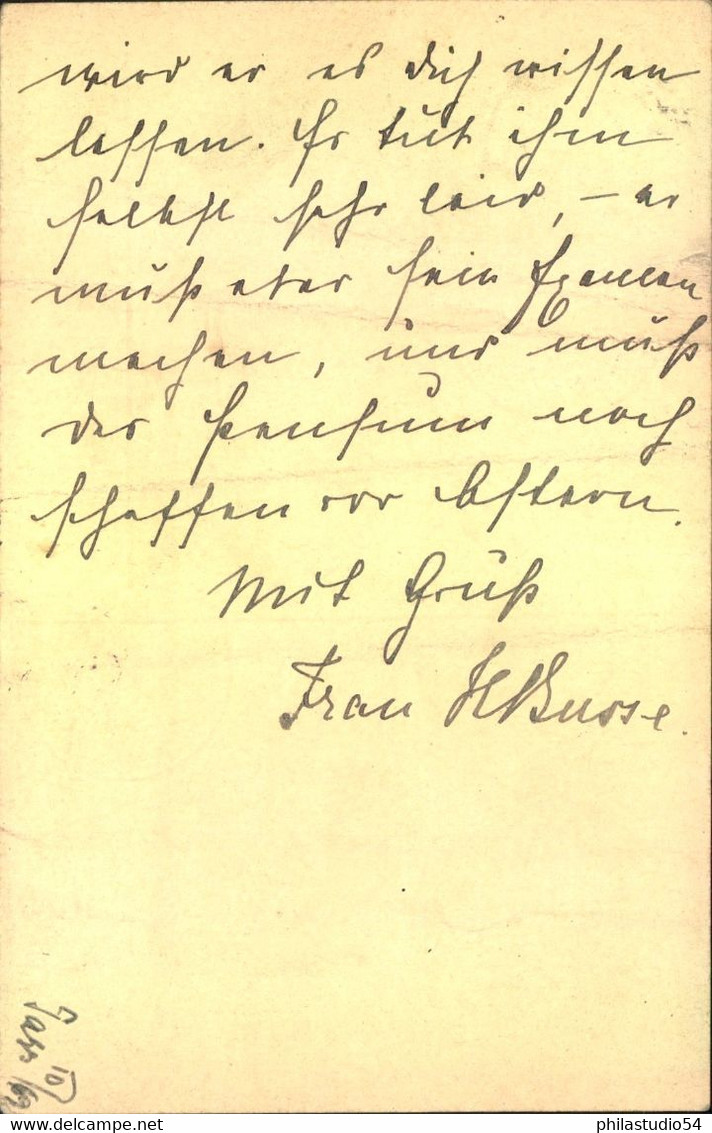 wird er es dich wissen
lassen. Es tut ihm
selbst sehr leid, – er
muß aber sein Examen
machen, und muß
das Pensum noch
schaffen vor Ostern.
Mit Gruß
Frau H Busse.
philastudio54